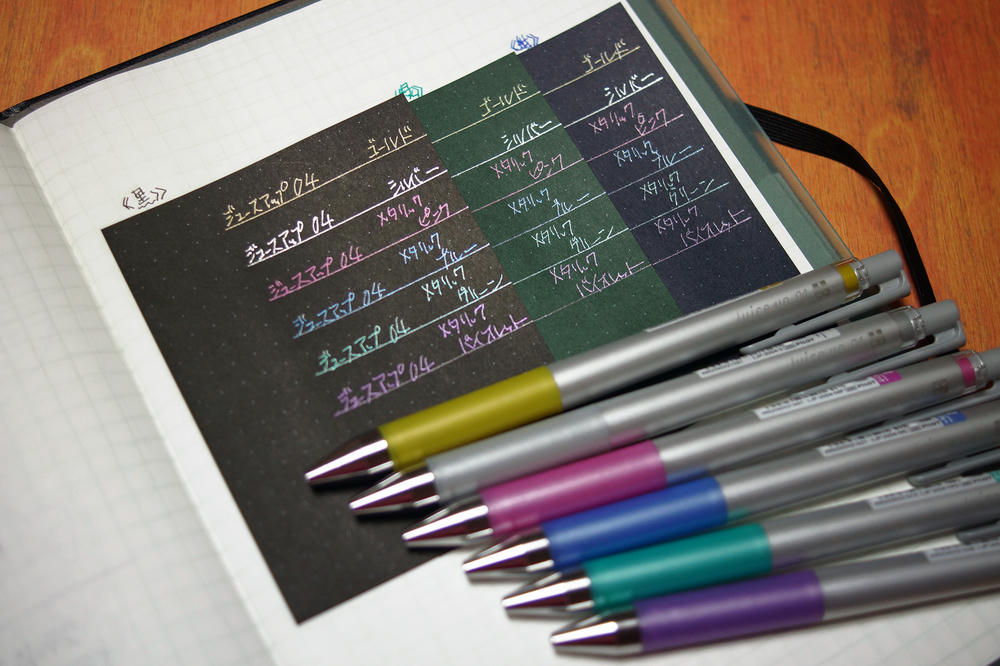 《黒》
ジュースアップ04 ゴールド ゴールド ゴールド
ジュースアップ04 シルバー シルバー シルバー
ジュースアップ04 メタリックピンク メタリックピンク メタリックピンク
ジュースアップ04 メタリックブルー メタリックブルー メタリックブルー
ジュースアップ04 メタリックグリーン メタリックグリーン メタリックグリーン
ジュースアップ04 メタリックバイオレット メタリックバイオレット メタリックバイオレット
Juice up 04
Juice up 04